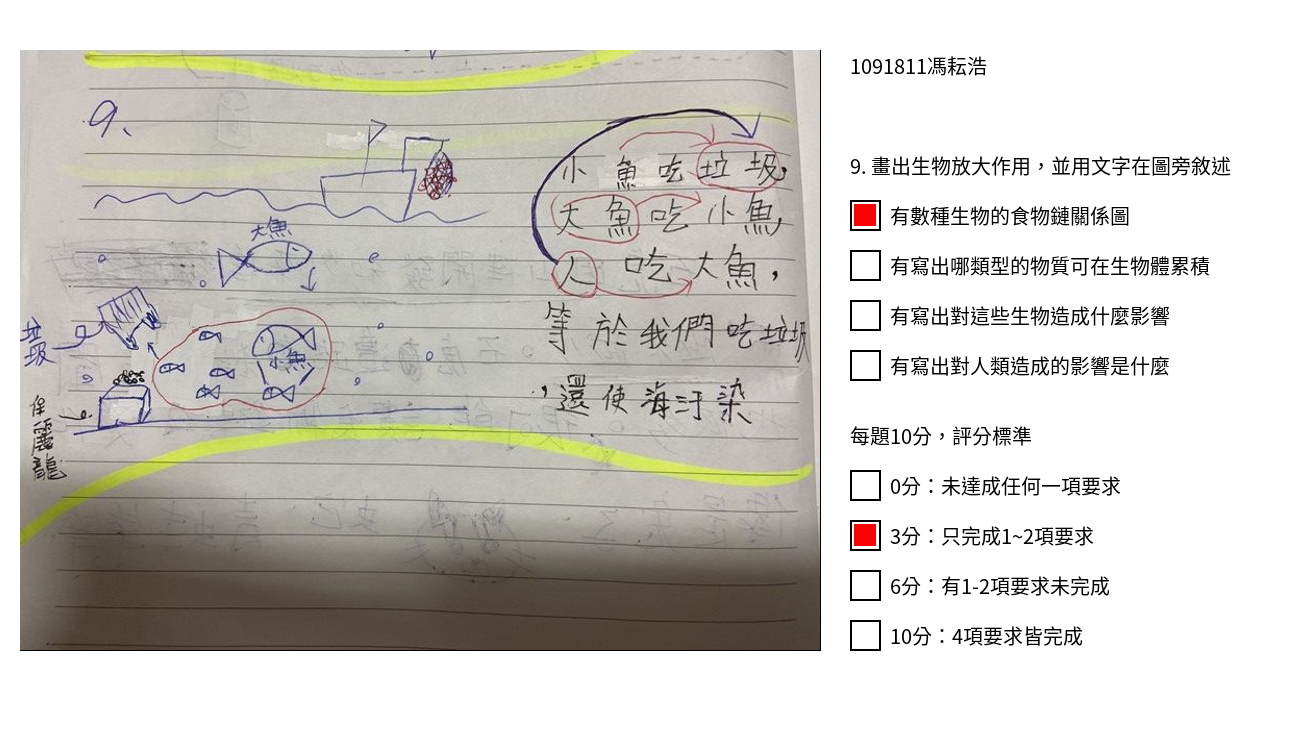 9.
小魚吃垃圾,
大魚吃小魚,
人吃大魚,
等於我們吃垃圾
,還使海汙染
大魚
小魚
垃圾
保麗龍
1091811馮耘浩
9. 畫出生物放大作用，並用文字在圖旁敘述
有數種生物的食物鏈關係圖
有寫出哪類型的物質可在生物體累積
有寫出對這些生物造成什麼影響
有寫出對人類造成的影響是什麼
每題10分，評分標準
0分：未達成任何一項要求
3分：只完成1~2項要求
6分：有1-2項要求未完成
10分：4項要求皆完成